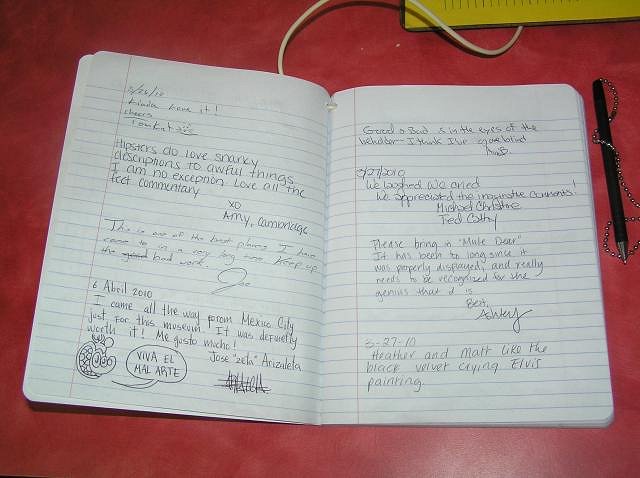 3/26/10
Kinda love it!
cheers
Hipsters do love snarky
descriptions to awful things.
I am no exception. Love all the
feet commentary
XO
Amy, Cambridge
This is one of the best places I have
come to in a very long time. Keep up
the good bad work.
Joe
6 Abril 2010
I came all the way from Mexico City
just for this museum! It was definetly
worth it! Me gustó mucho!
Jose "zeta" Arizaleta
VIVA EL
MAL ARTE
Good & Bad is in the eyes of the
beholder- I think I've gone blind
3/27/2010
We laughed We cried
We appreciated the imaginative comments!
Michael Christine
Ted Cathy
Please bring in "Mule Dear"
It has been to long since it
was properly displayed, and really
needs to be recognized for the
genius that it is
Best,
Ashley
3-27-10
Heather and Matt like the
black velvet crying Elvis
painting.